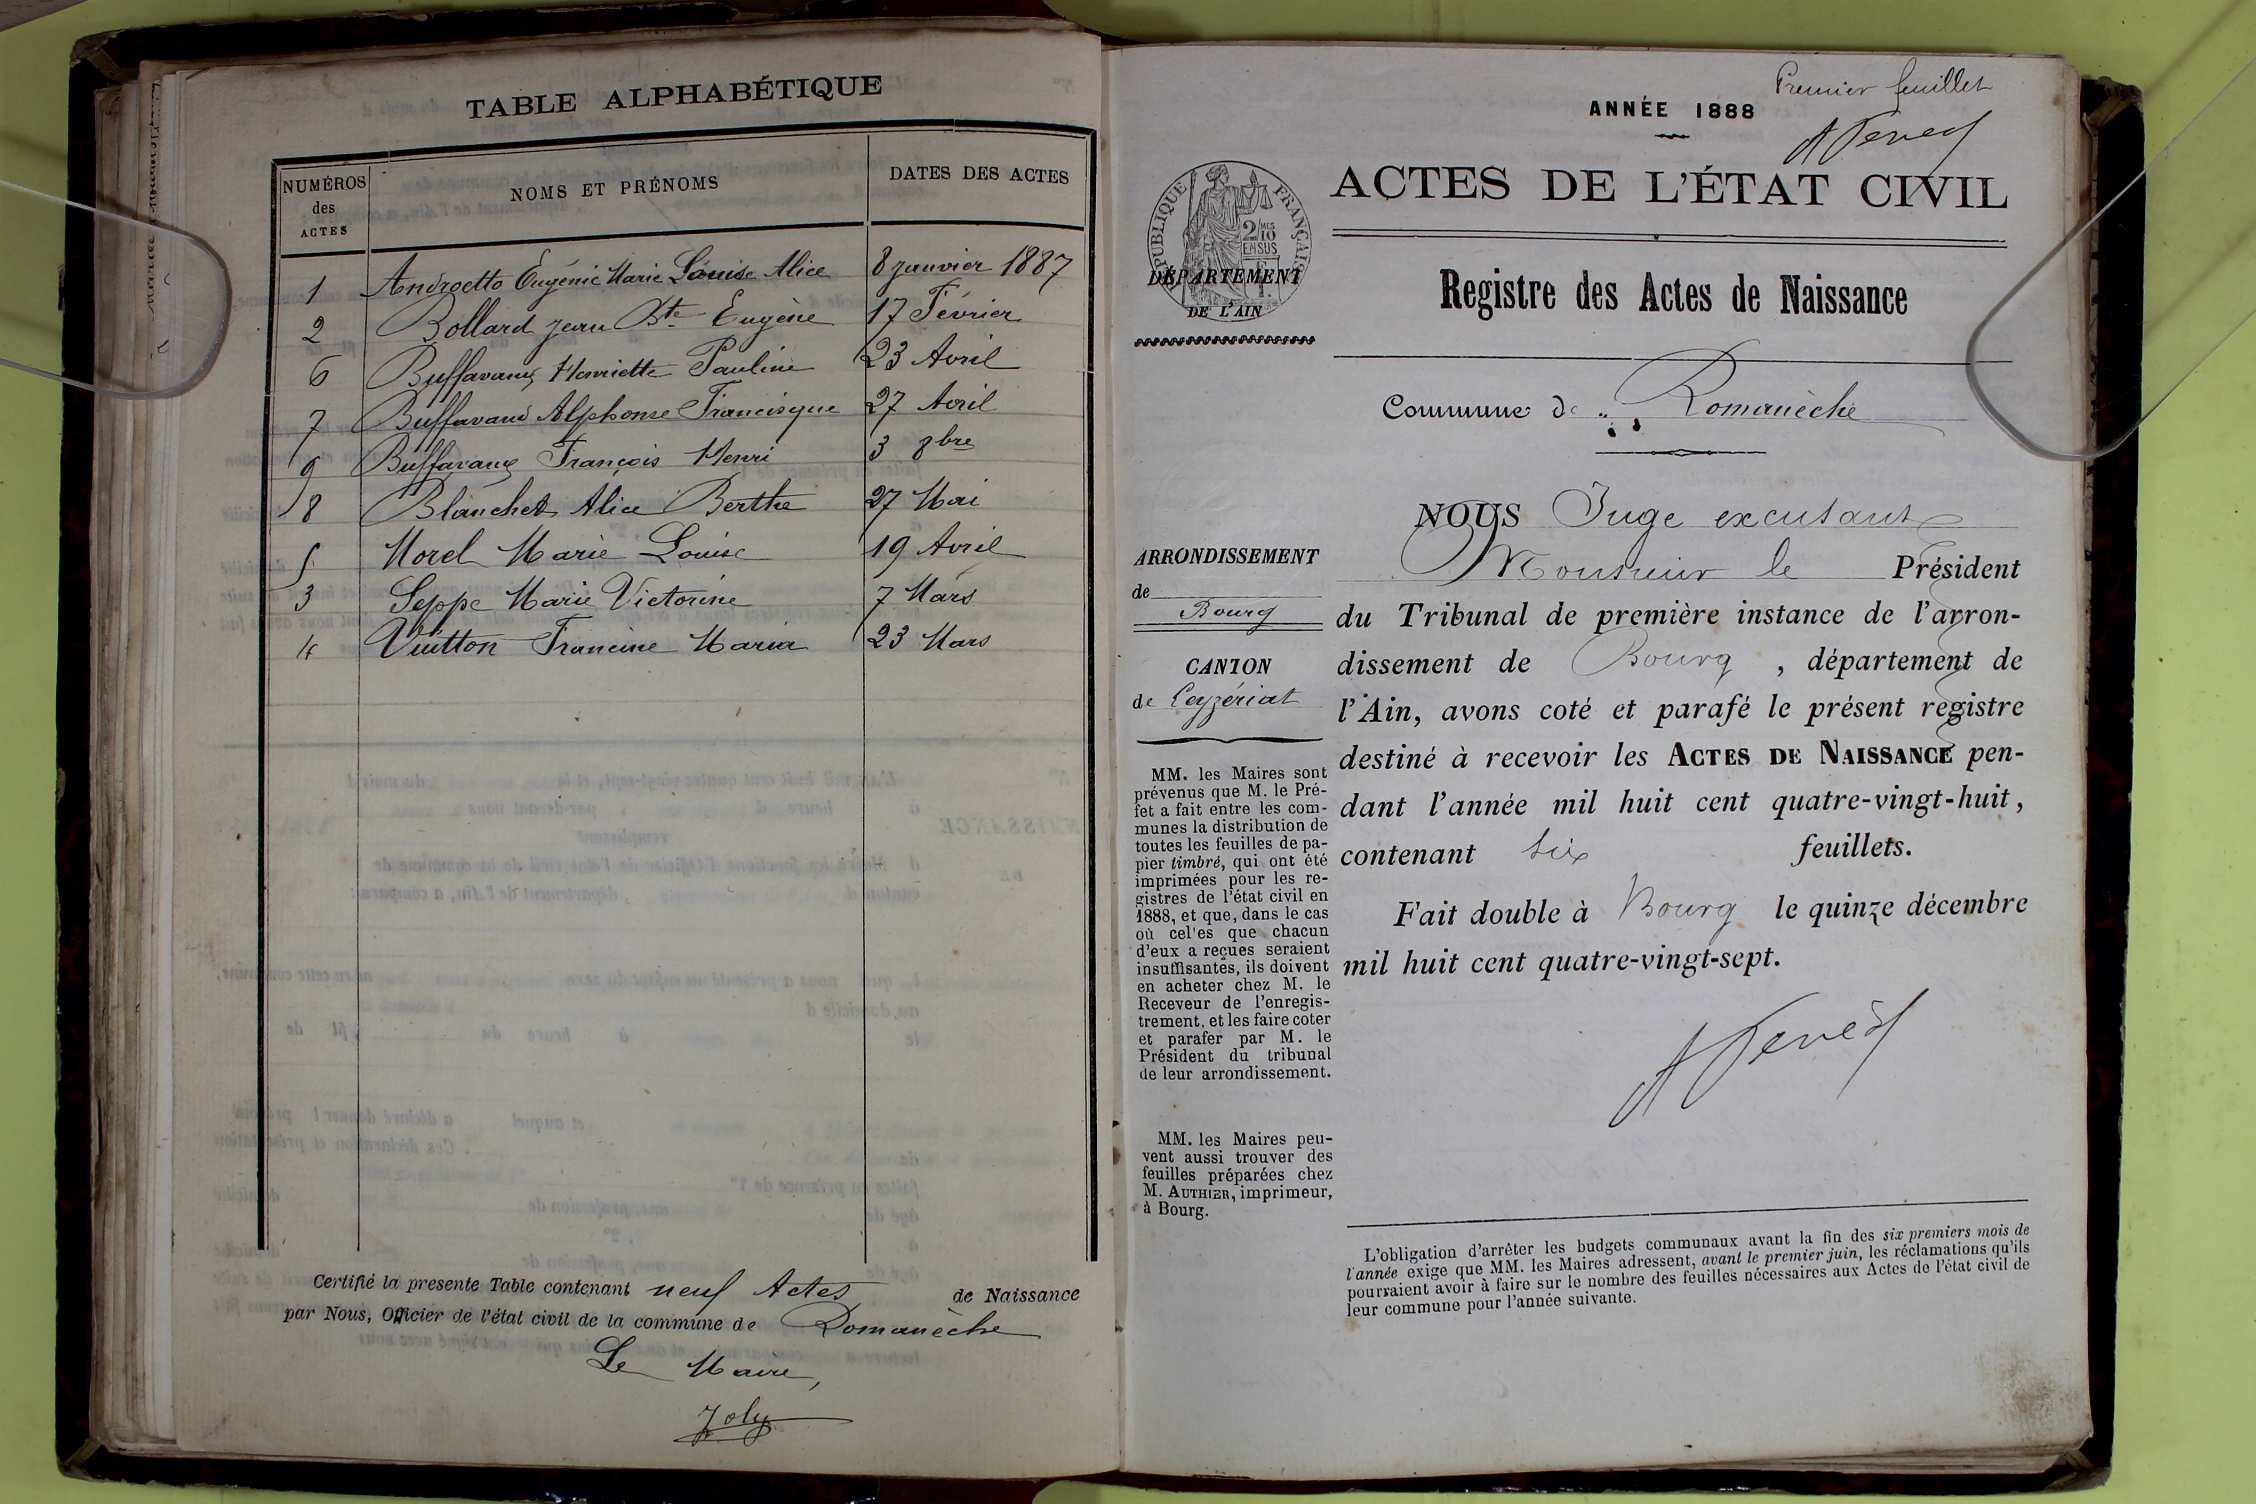 TABLE ALPHABÉTIQUE
NUMÉROS des ACTES NOMS ET PRÉNOMS DATES DES ACTES
1 Androetto Eugénie Marie Louise Alice 8 janvier 1887
2 Bollard jean Bte Eugène 17 Février
6 Buffavand Henriette Pauline 23 Avril
7 Buffavand Alphonse Francisque 27 Avril
9 Buffavand François Henri 3 8bre
8 Blanchet Alice Berthe 27 Mai
5 Morel Marie Louise 19 Avril
3 Seppe Marie Victorine 7 Mars
4 Vuitton Francine Maria 23 Mars
Certifié la presente Table contenant neuf Actes de Naissance
par Nous, Officier de l'état civil de la commune de Romanèche
Le Maire,
Joly
Premier feuillet
ANNÉE 1888
ACTES DE L'ÉTAT CIVIL
RÉPUBLIQUE FRANÇAISE
2/10 MES
EN SUS
DÉPARTEMENT
DE L'AIN
Registre des Actes de Naissance
Commune de Romanèche
ARRONDISSEMENT
de
Bourg
CANTON
de Ceyzériat
MM. les Maires sont
prévenus que M. le Pré-
fet a fait entre les com-
munes la distribution de
toutes les feuilles de pa-
pier timbré, qui ont été
imprimées pour les re-
gistres de l'état civil en
1888, et que, dans le cas
où cel'es que chacun
d'eux a reçues seraient
insuffisantes, ils doivent
en acheter chez M. le
Receveur de l'enregis-
trement, et les faire coter
et parafer par M. le
Président du tribunal
de leur arrondissement.
MM. les Maires peu-
vent aussi trouver des
feuilles préparées chez
M. AUTHIER, imprimeur,
à Bourg.
NOUS Juge excusant
Monsieur le Président
du Tribunal de première instance de l'arron-
dissement de Bourg, département de
l'Ain, avons coté et parafé le présent registre
destiné à recevoir les ACTES DE NAISSANCE pen-
dant l'année mil huit cent quatre-vingt-huit,
contenant six feuillets.
Fait double à Bourg le quinze décembre
mil huit cent quatre-vingt-sept.
L'obligation d'arrêter les budgets communaux avant la fin des six premiers mois de
l'année exige que MM. les Maires adressent, avant le premier juin, les réclamations qu'ils
pourraient avoir à faire sur le nombre des feuilles nécessaires aux Actes de l'état civil de
leur commune pour l'année suivante.